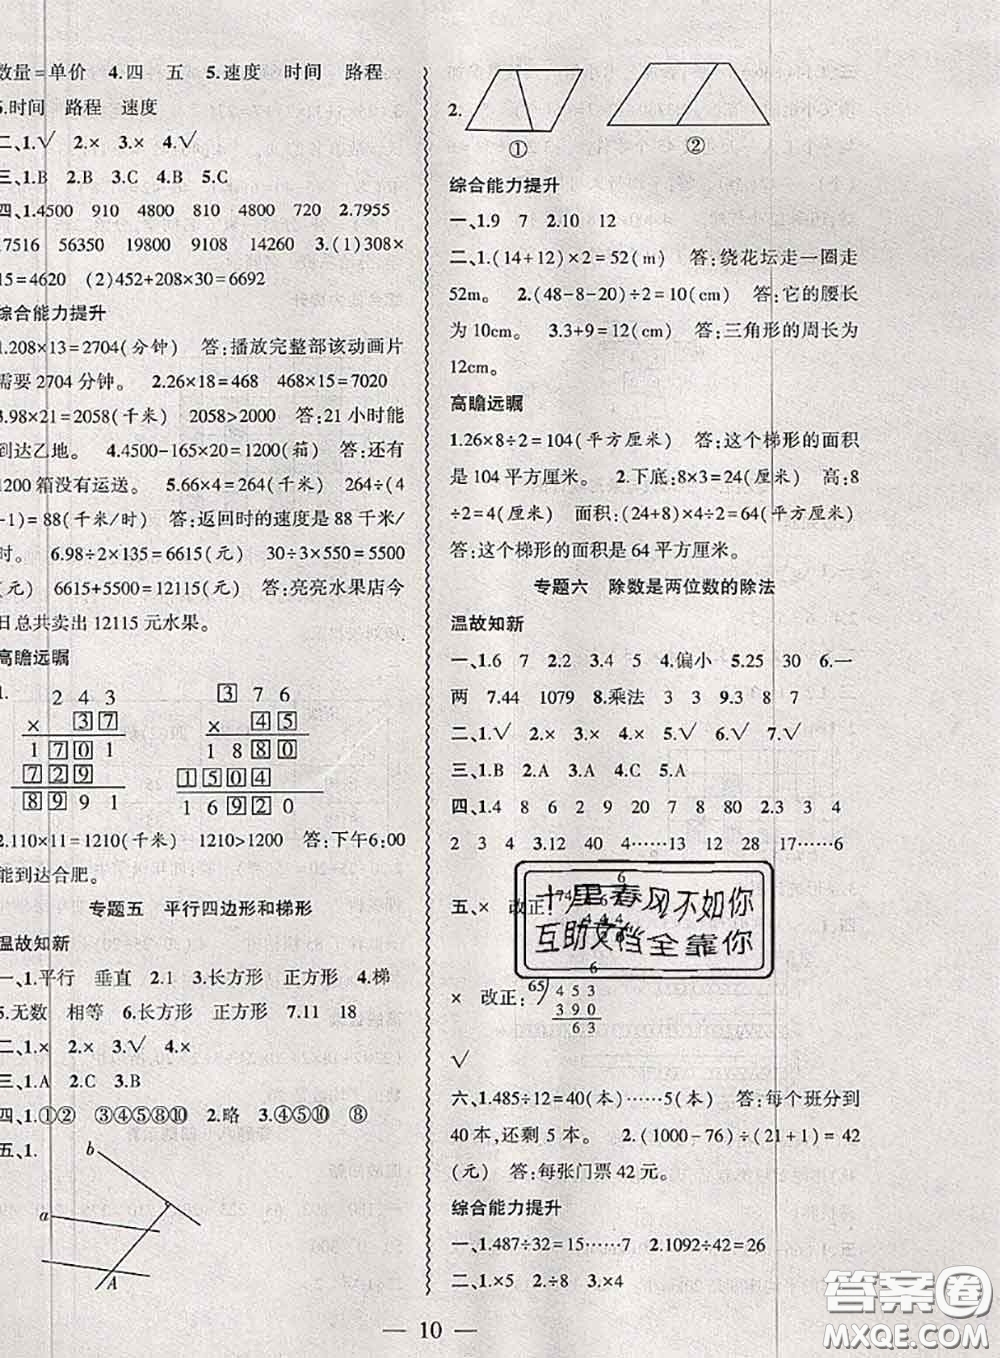 数量=单价 4.四 五 5.速度 时间 路程
6.时间 路程 速度
二、1.√ 2.× 3.× 4.√
三、1.B 2.B 3.C 4.B 5.C
四、1.4500 910 4800 910 4800 720 2.7955
17516 56350 19800 9108 14260 3.(1)308×
15=4620 (2)452+208×30=6692
综合能力提升
1.208×13=2704(分钟) 答:播放完整部该动画片
需要 2704 分钟。 2.26×18=468 468×15=7020
3.98×21=2058(千米) 2058>2000 答:21 小时能
到达乙地。 4.4500-165×20=1200(箱) 答:还有
1200 箱没有运送。 5.66×4=264(千米) 264÷(4
-1)=88(千米/时) 答:返回时的速度是 88 千米/
时。 6.98÷2×135=6615(元) 30÷3×550=5500
(元) 6615+5500=12115(元) 答:亮亮水果店今
日总共卖出 12115 元水果。
高瞻远瞩
1.
2 4 3
× 3 7
1 7 0 1
7 2 9
8 9 9 1
3 7 6
× 4 5
1 8 8 0
1 5 0 4
1 6 9 2 0
2.110×11=1210(千米) 1210>1200 答:下午6:00
能到达合肥。
专题五 平行四边形和梯形
温故知新
一、1.平行 垂直 2.1 3.长方形 正方形 4.梯
5.无数 相等 6.长方形 正方形 7.11 18
二、1.× 2.× 3.√ 4.×
三、1.A 2.C 3.B
四、1.①② ③④⑤⑧⑩ 2.略 3.④⑤⑩ ⑧
五、1.
b
a
A
2.
① ②
综合能力提升
一、1.9 7 2.10 12
二、1.(14+12)×2=52(m) 答:绕花坛走一圈走
52m。 2.(48-8-20)÷2=10(cm) 答:它的腰长
为 10cm。 3.3+9=12(cm) 答:三角形的周长为
12cm。
高瞻远瞩
1.26×8÷2=104(平方厘米) 答:这个梯形的面积
是 104 平方厘米。 2.下底:8×3=24(厘米) 高:8
÷2=4(厘米) 面积:(24+8)×4÷2=64(平方厘米)
答:这个梯形的面积是 64 平方厘米。
专题六 除数是两位数的除法
温故知新
一、1.6 7 2.2 3.4 5 4.偏小 5.25 30 6.一
两 7.44 1079 8.乘法 3 3 9.3 8 7
二、1.√ 2.× 3.× 4.× 5.√ 6.√ 7.√
三、1.B 2.A 3.A 4.C 5.A
四、1.4 8 6 2 9 20 7 6 80 2.3 3 4
2 3 4 3.12 40 4……4 13 12 28 17……6
五、× 改正:
6
74
4 4 4
十里春风不如你
互助文档全靠你
× 改正:
6
65 4 5 3
3 9 0
6 3
√
六、1.485÷12=40(本)……5(本) 答:每个班分到
40 本,还剩 5 本。 2.(1000-76)÷(21+1)=42
(元) 答:每张门票 42 元。
综合能力提升
一、1.487÷32=15……7 2.1092÷42=26
二、1.×5 2.÷8 3.×4
答案圈
MXQE.COM
— 10 —